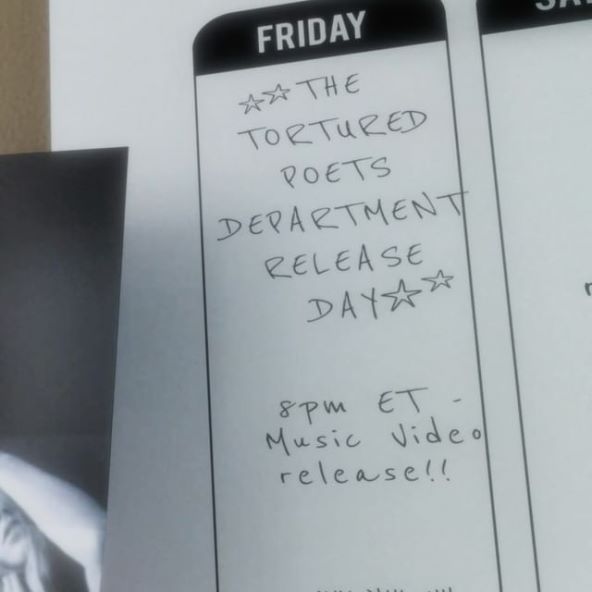 FRIDAY
☆☆ THE
TORTURED
POETS
DEPARTMENT
RELEASE
DAY☆☆
8pm ET -
Music Video
release!!